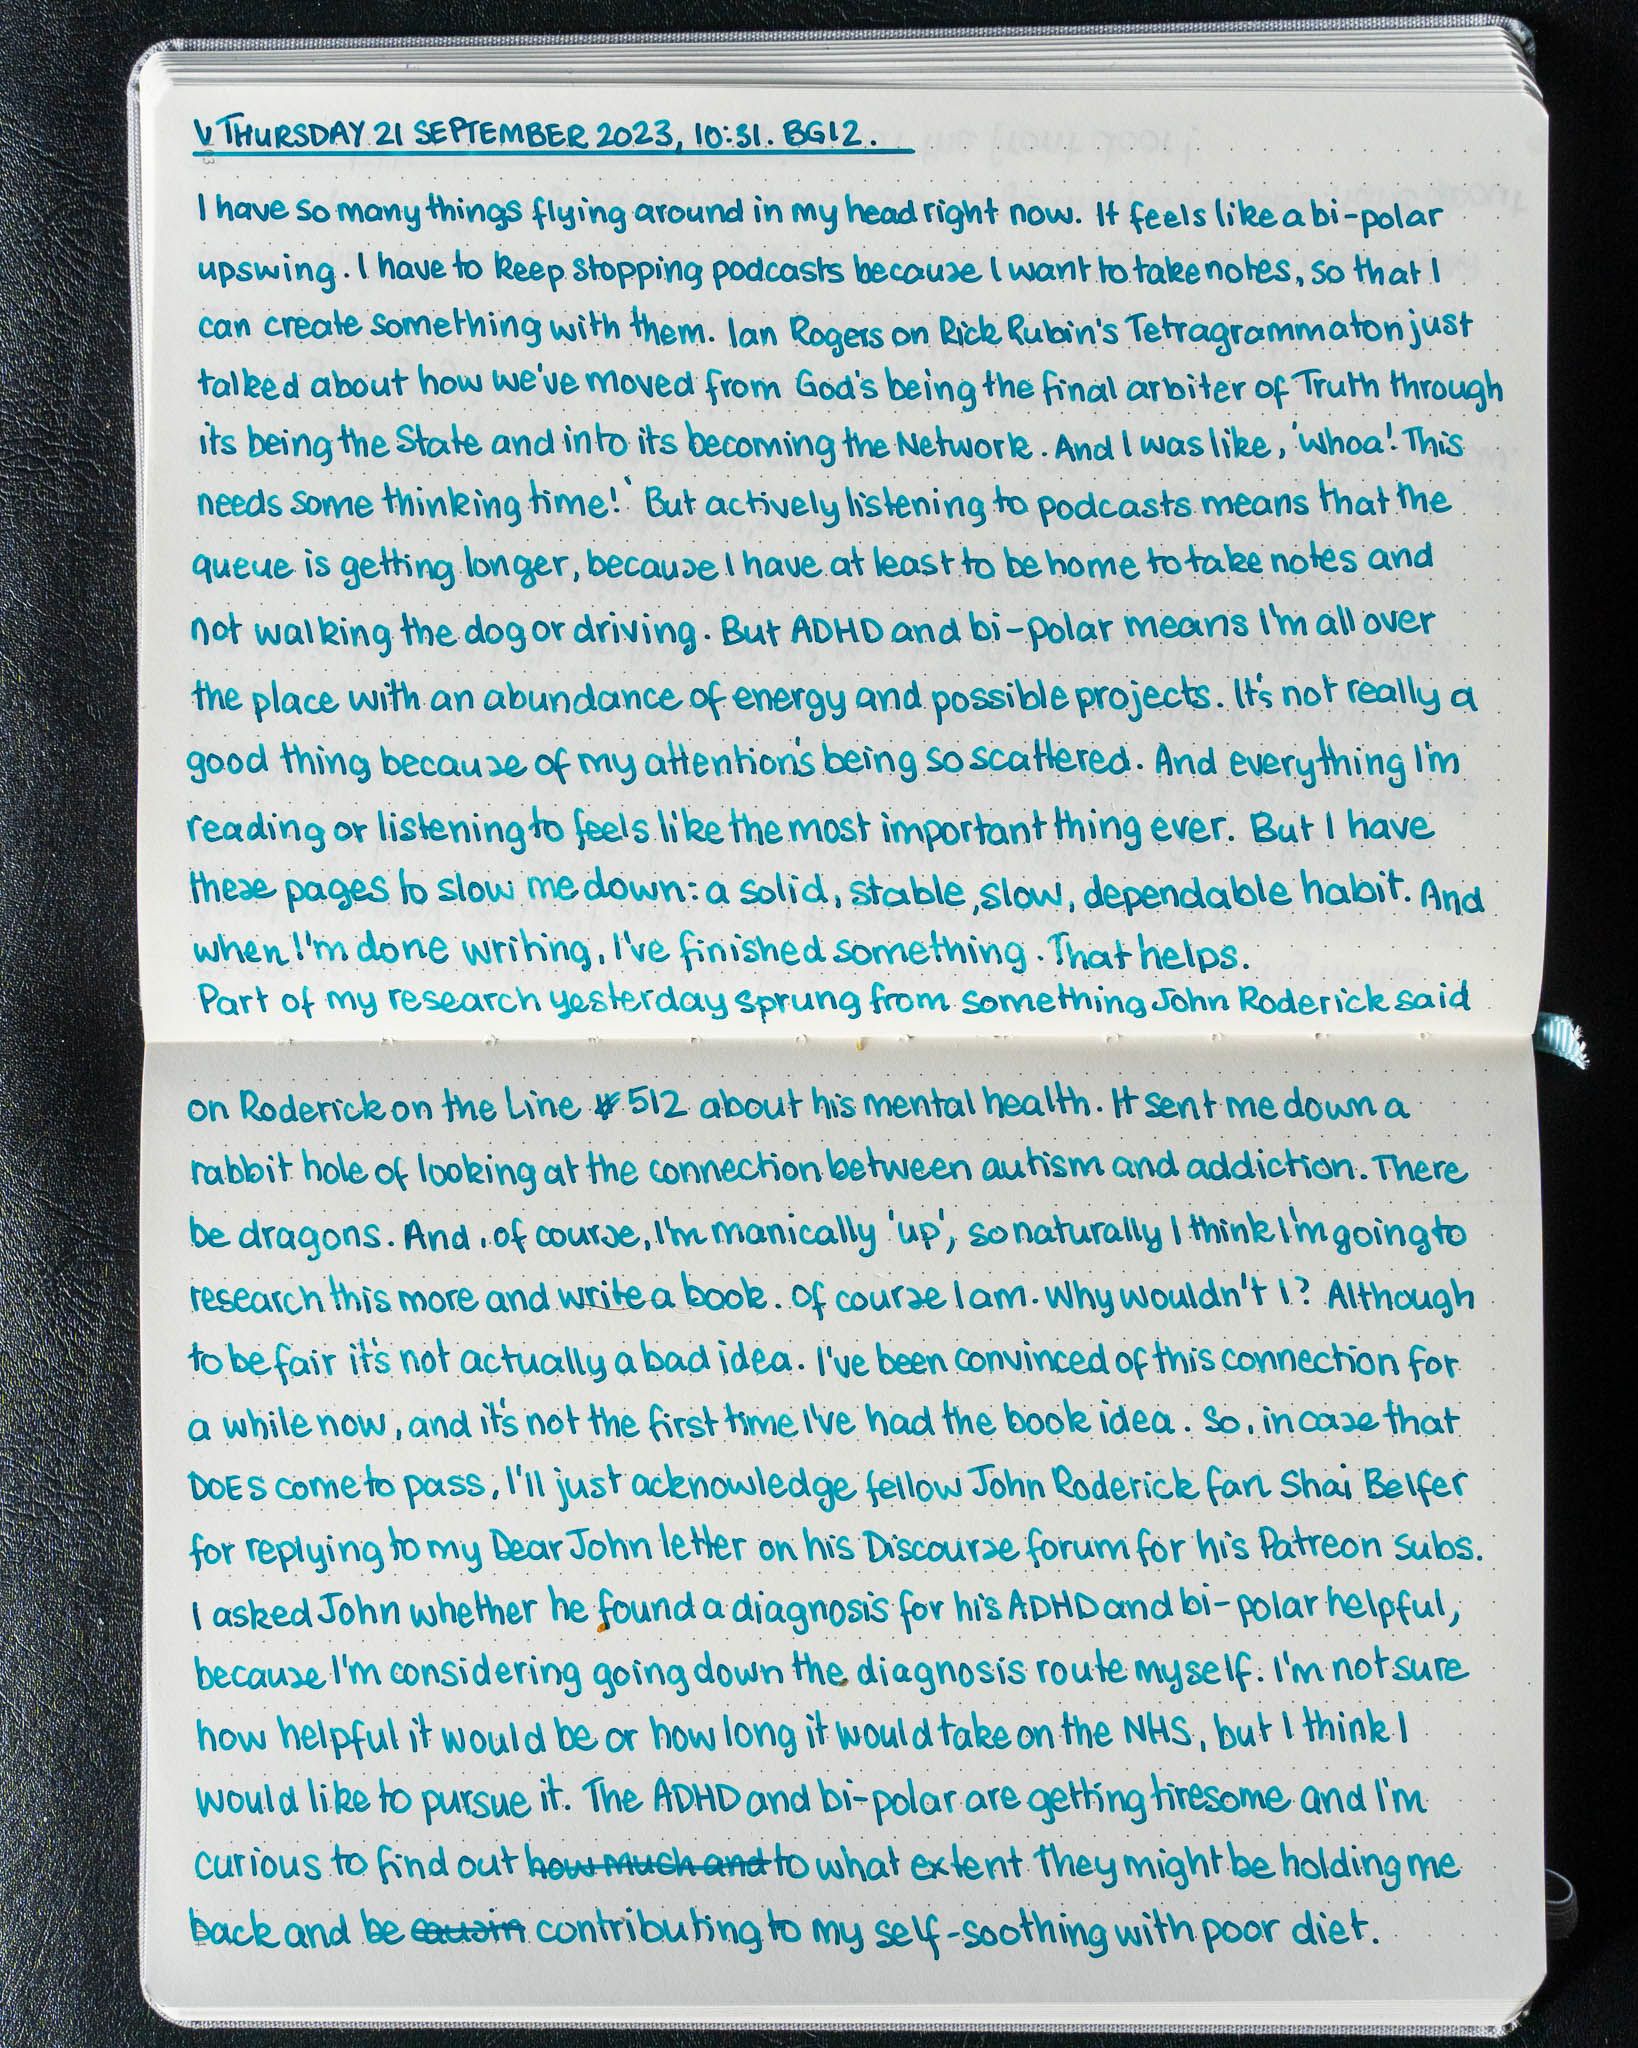 V THURSDAY 21 SEPTEMBER 2023, 10:31. BG12.
I have so many things flying around in my head right now. It feels like a bi-polar
upswing. I have to keep stopping podcasts because I want to take notes, so that I
can create something with them. Ian Rogers on Rick Rubin's Tetragrammaton just
talked about how we've moved from God's being the final arbiter of Truth through
its being the State and into its becoming the Network. And I was like, 'Whoa! This
needs some thinking time!' But actively listening to podcasts means that the
queue is getting longer, because I have at least to be home to take notes and
not walking the dog or driving. But ADHD and bi-polar means I'm all over
the place with an abundance of energy and possible projects. It's not really a
good thing because of my attention's being so scattered. And everything I'm
reading or listening to feels like the most important thing ever. But I have
these pages to slow me down: a solid, stable, slow, dependable habit. And
when I'm done writing, I've finished something. That helps.
Part of my research yesterday sprung from something John Roderick said
on Roderick on the Line #512 about his mental health. It sent me down a
rabbit hole of looking at the connection between autism and addiction. There
be dragons. And, of course, I'm manically 'up', so naturally I think I'm going to
research this more and write a book. Of course I am. Why wouldn't I? Although
to be fair it's not actually a bad idea. I've been convinced of this connection for
a while now, and it's not the first time I've had the book idea. So, in case that
DOES come to pass, I'll just acknowledge fellow John Roderick fan Shai Belfer
for replying to my Dear John letter on his Discourse forum for his Patreon subs.
I asked John whether he found a diagnosis for his ADHD and bi-polar helpful,
because I'm considering going down the diagnosis route myself. I'm not sure
how helpful it would be or how long it would take on the NHS, but I think I
would like to pursue it. The ADHD and bi-polar are getting tiresome and I'm
curious to find out how much and to what extent they might be holding me
back and be causin contributing to my self-soothing with poor diet.